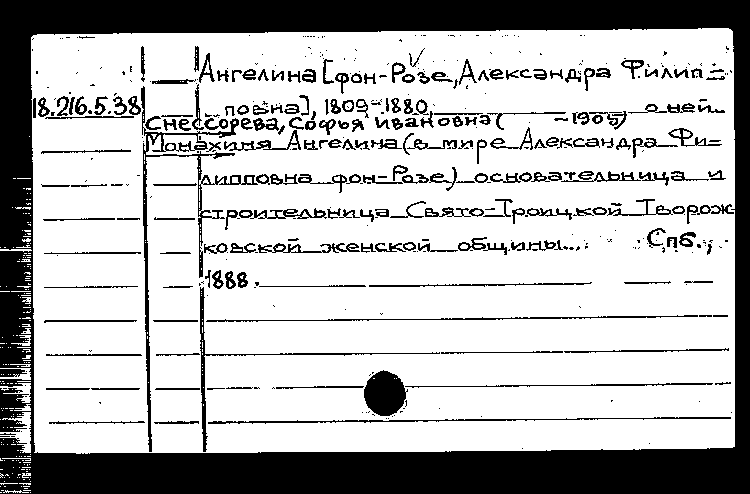 Ангелина [фон-Розе, Александра Филип=
18.216.5.38 повна], 1809-1880, о ней.
Снессорева, Софья Ивановна ( -1905)
Монахиня Ангелина (в мире Александра Фи=
липповна фон-Розе) основательница и
строительница Свято-Троицкой Творож
ковской женской общины... Спб.,
1888.